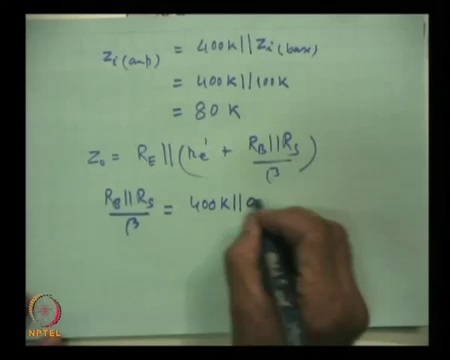 Zi(amp) = 400K || Zi(base)
= 400K || 100K
= 80 K
Zo = RE || (re' + RB || RS / β)
RB || RS / β = 400K ||
NPTEL